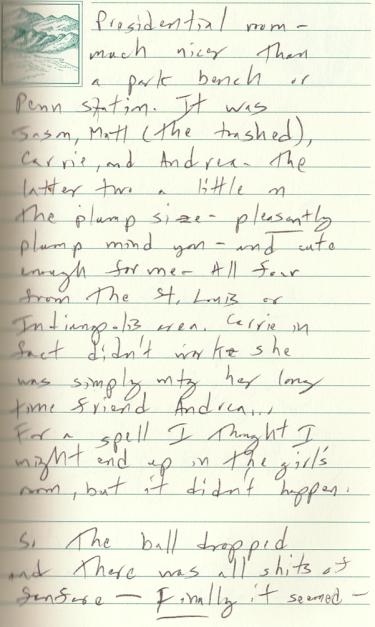 Presidential room –
much nicer than
a park bench or
Penn station. It was
Jason, Matt (the trashed),
Carrie, and Andrea – the
latter two a little on
the plump size – pleasantly
plump mind you – and cute
enough for me – All four
from the St. Louis or
Indianapolis area. Carrie in
fact didn't work she
was simply mtg her long
time friend Andrea...
For a spell I thought I
might end up in the girl's
room, but it didn't happen.
So the ball dropped
and there was all shits of
fanfare — Finally it seemed –